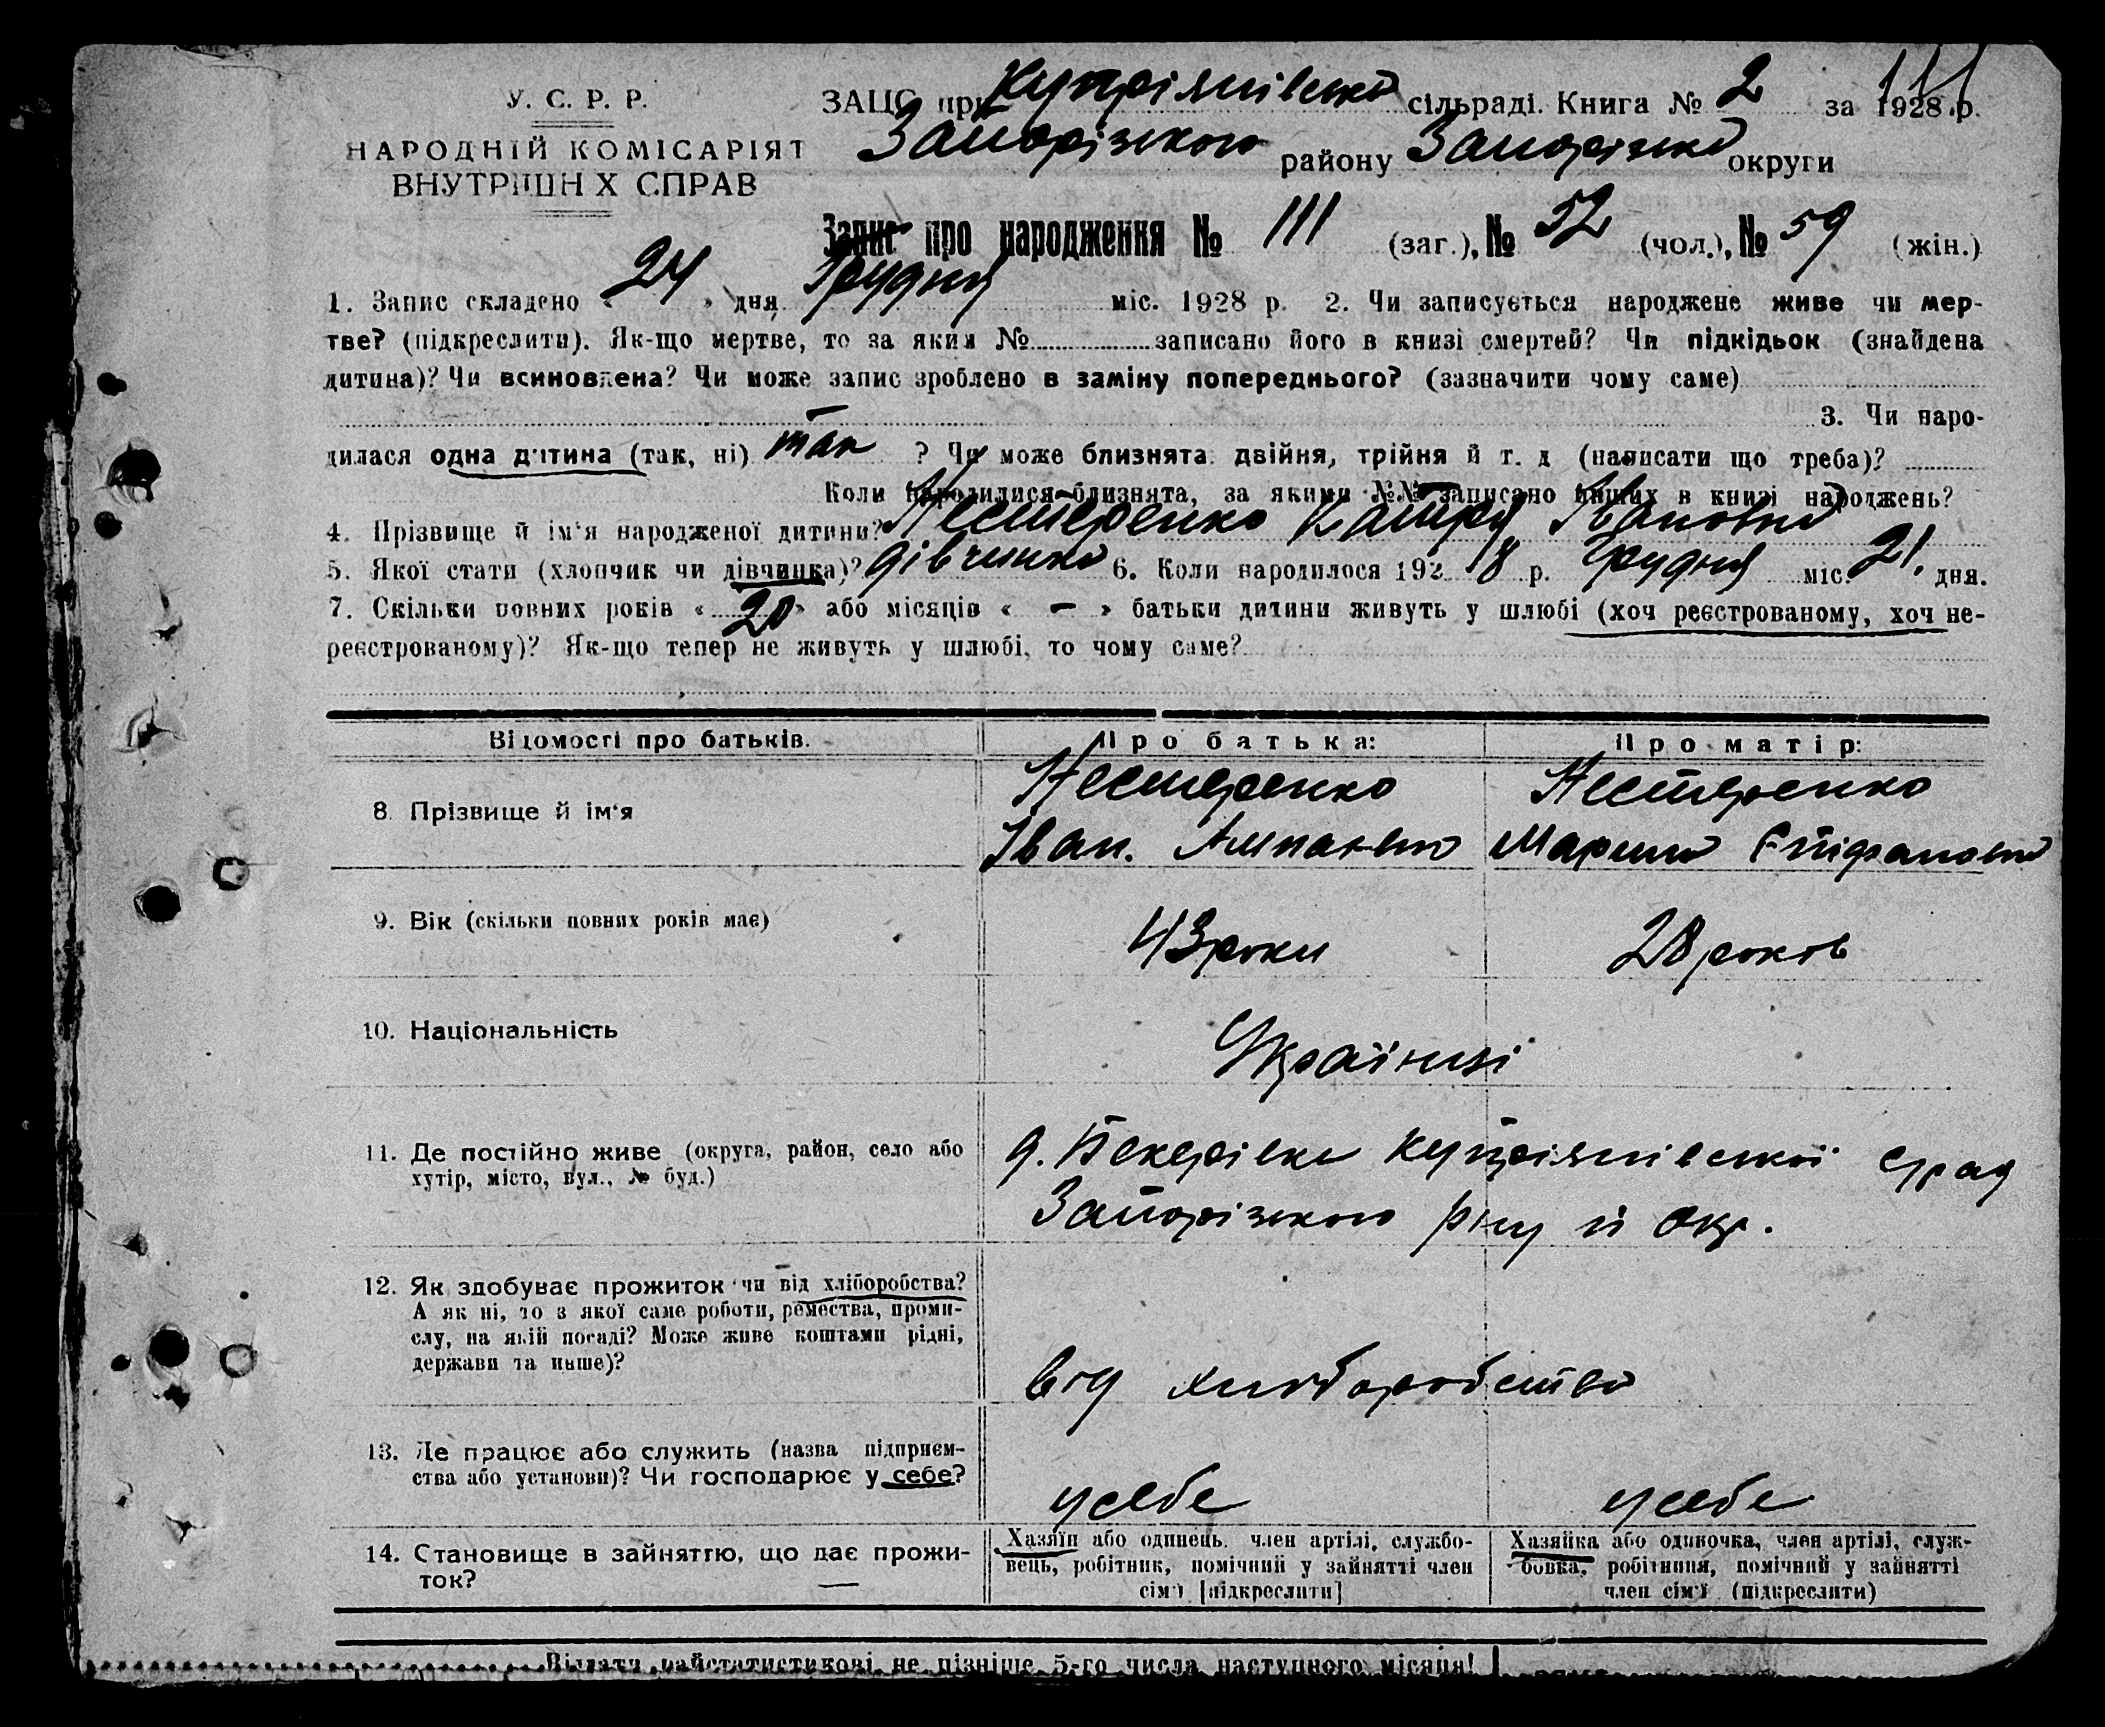 111
У. С. Р. Р.
НАРОДНІЙ КОМІСАРІЯТ
ВНУТРІШНІХ СПРАВ
ЗАЦС при Купріянівській сільраді. Книга № 2 за 1928 р.
Запорізького району Запорізької округи
Запис про народження № 111 (заг.), № 52 (чол.), № 59 (жін.)
1. Запис складено « 24 » дня Грудня міс. 1928 р. 2. Чи записується народжене живе чи мер-
тве? (підкреслити). Як-що мертве, то за яким № записано його в книзі смертей? Чи підкідьок (знайдена
дитина)? Чи всиновлена? Чи може запис зроблено в заміну попереднього? (зазначити чому саме)
— 3. Чи наро-
дилася одна дитина (так, ні) так ? Чи може близнята: двійня, трійня й т. д (написати що треба)?
Коли народилися близнята, за якими №№ записано инших в книзі народжень?
4. Прізвище й ім'я народженої дитини? Нестеренко Катря Івановна
5. Якої стати (хлопчик чи дівчинка)? дівчинка 6. Коли народилося 192 8 р. Грудня міс. 21. дня.
7. Скільки повних років « 20 » або місяців « — » батьки дитини живуть у шлюбі (хоч реєстрованому, хоч не-
реєстрованому)? Як-що тепер не живуть у шлюбі, то чому саме?
Відомості про батьків. Про батька: Про матір:
8. Прізвище й ім'я
Нестеренко Нестеренко
Іван. Марина Єпіфановна
9. Вік (скільки повних років має) 43 роки 28 років
10. Національність Українці
11. Де постійно живе (округа, район, село або
хутір, місто, вул., № буд.)
Купріянівської срад
Запорізького р-ну й Окр.
12. Як здобуває прожиток чи від хліборобства?
А як ні, то з якої саме роботи, ремества, проми-
слу, на якій посаді? Може живе коштами рідні,
держави та инше)?
від хліборобства
13. Де працює або служить (назва підприєм-
ства або установи)? Чи господарює у себе?
у себе у себе
14. Становище в зайняттю, що дає прожи-
ток? —
Хазяїн або одинець, член артілі, службо-
вець, робітник, помічний у зайнятті член
сім'ї [підкреслити]
Хазяйка або одиночка, член артілі, служ-
бовка, робітниця, помічний у зайнятті
член сім'ї (підкреслити)
Віддати райстатистикові не пізніше 5-го числа наступного місяця!